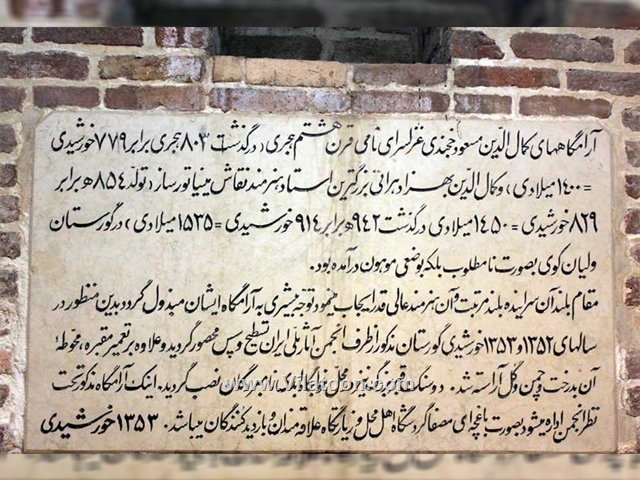 آرامگاههای کمال الدّین مسعود خجندی غزلسرای نامی قرن هشتم هجری (درگذشت ۸۰۳ هجری برابر ۷۷۹ خورشیدی
= ۱۴۰۰ میلادی) و کمال الدّین بهزاد هراتی بزرگترین استاد هنرمند نقاش مینیاتورساز (تولّد ۸۵۴ ه برابر
۸۲۹ خورشیدی = ۱۴۵۰ میلادی درگذشت ۹۴۲ ه برابر ۹۱۴ خورشیدی = ۱۵۳۵ میلادی) در گورستان
ولیان کوی بصورت نامطلوب بلکه بوضعی موهون درآمده بود.
مقام بلند آن سراینده بلند مرتبت و آن هنرمند عالی قدر ایجاب مینمود توجّه بیشتری به آرامگاه ایشان مبذول گردد بدین منظور در
سالهای ۱۳۵۲ و ۱۳۵۳ خورشیدی گورستان مذکور از طرف انجمن آثار ملی ایران تسطیح و سپس محصور گردید و علاوه بر تعمیر مقبره، محوطهٔ
آن بدرخت و چمن و گل آراسته شد. دو سنگ قبر نیز محل خاکگذاری نامبردگان نصب گردید. اینک آرامگاه مذکور تحت
نظر انجمن اداره میشود بصورت باغچه‌ای مصفا گردشگاه اهل محل و زیارتگاه علاقه‌مندان و بازدید کنندگان میباشد. ۱۳۵۳ خورشیدی